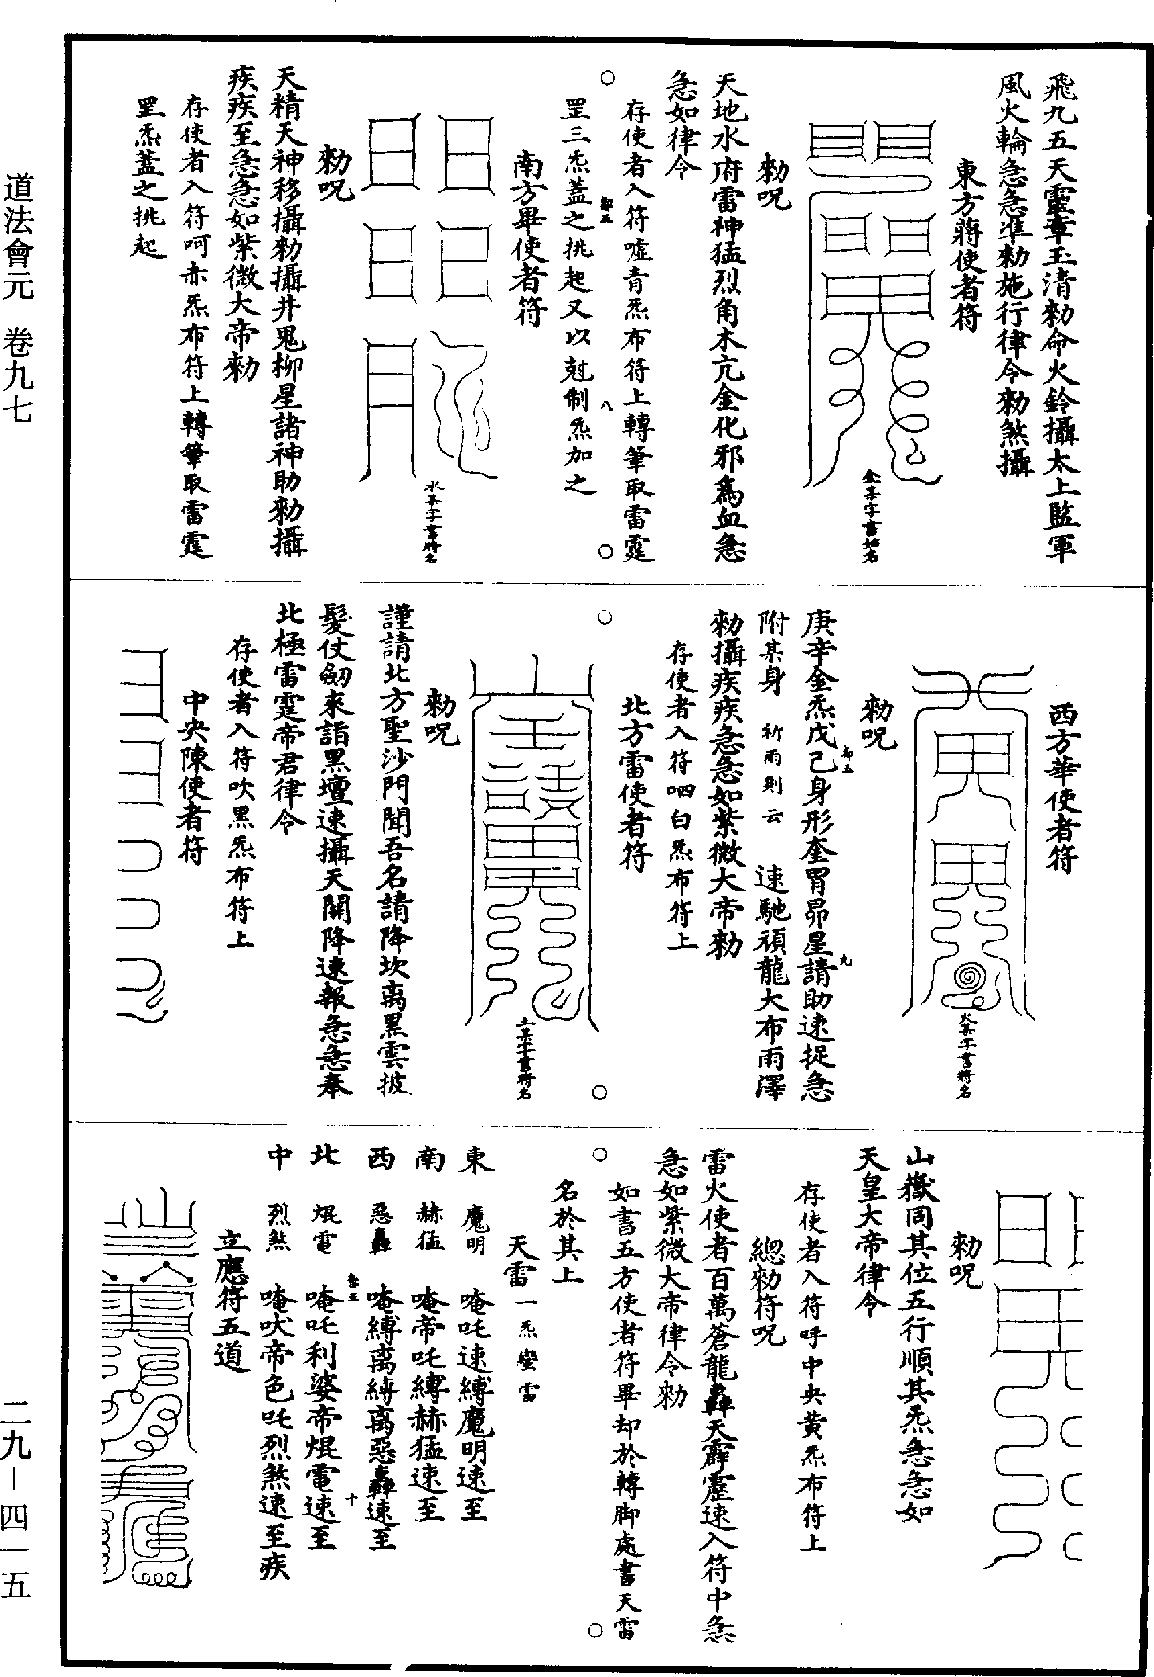 飛九五天靈章玉清勑命火鈴攝太上監軍
風火輪急急准勑施行律令勑煞攝
東方蔣使者符
金木字書將名
勑呪
天地水府雷神猛烈角木亢金化邪爲血急
急如律令
存使者入符噓青炁布符上轉筆取雷霆
罡三炁蓋之挑起又以尅制炁加之
南方畢使者符
勑呪
天精天神移攝勑攝井鬼柳星諸神助勑攝
疾疾至急急如紫微大帝勑
存使者入符呵赤炁布符上轉筆取雷霆
罡炁蓋之挑起
西方華使者符
勑呪
庚辛金炁戊己身形奎胃昴星請助速捉急
附某身 祈雨則云 速馳頑龍大布雨澤
勑攝疾疾急急如紫微大帝勑
存使者入符呬白炁布符上
北方雷使者符
勑呪
謹請北方聖沙門聞吾名請降坎离黑雲披
髮仗劒來詣黑壇速攝天關降速報急急奉
北極雷霆帝君律令
存使者入符吹黑炁布符上
中央陳使者符
勑呪
山嶽同其位五行順其炁急急如
天皇大帝律令
存使者入符呼中央黃炁布符上
總勑符呪
雷火使者百萬蒼龍轟天霹靂速入符中急
急如紫微大帝律令勑
如書五方使者符畢却於轉脚處書天雷
名於其上
天雷一炁蠻雷
東 魔明 唵吒速縛魔明速至
南 赫猛 唵帝吒縛赫猛速至
西 惡轟 唵縛离縛离惡轟速至
北 焜電 唵吒利婆帝焜電速至
中 烈煞 唵吠帝色吒烈煞速至疾
立應符五道
道法會元 卷九七
二九－四一五